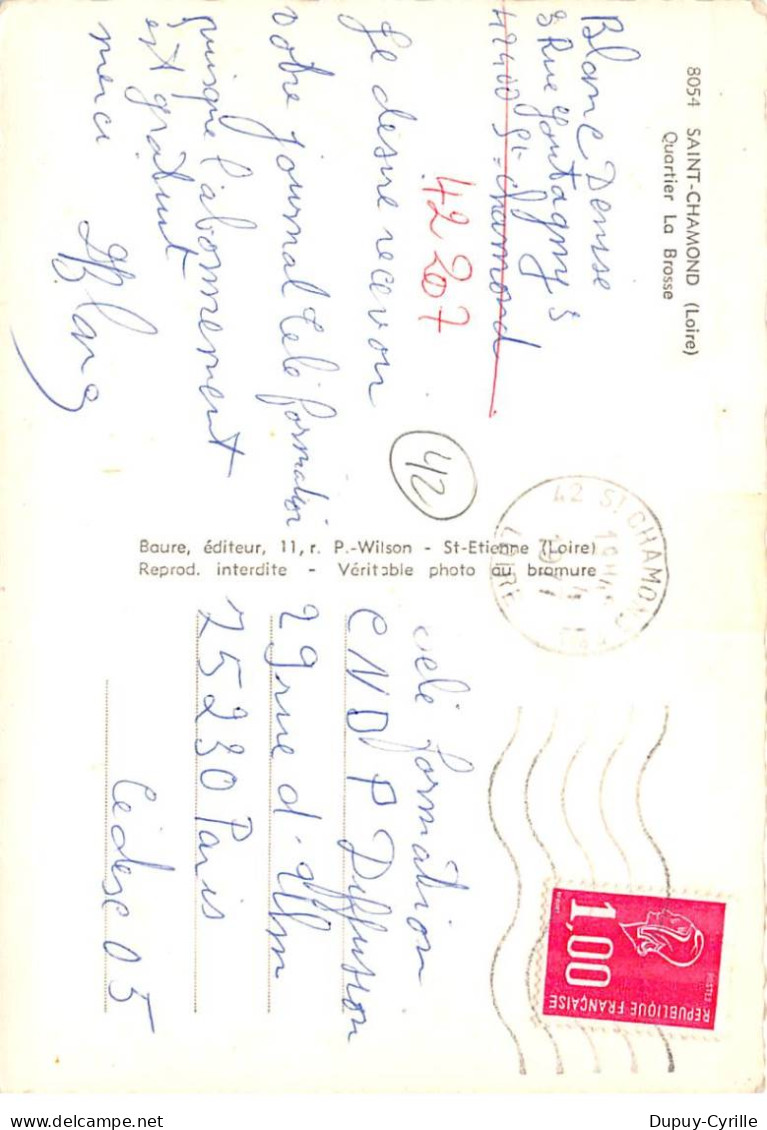 8054 SAINT-CHAMOND (Loire)
Quartier La Brosse
Blanc Denise
8 Rue Gontagny's
42400 St-Chamond
42 207
Je desire recevoir
votre journal télé formation
puisque l'abonnement
est gratuit
merci
DBlanc
42
Baure, éditeur, 11, r. P.-Wilson - St-Etienne (Loire)
Reprod. interdite - Véritable photo au bromure
42 ST CHAMOND
LOIRE
télé formation
CNDP Diffusion
29 rue d'Ulm
75230 Paris
Cédex 05
1,00
POSTES
REPUBLIQUE FRANÇAISE
Dupuy-Cyrille